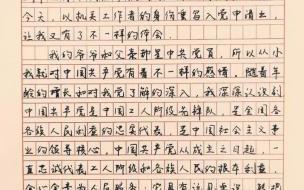 今天，以机关工作者的身份重名入党申请书，
让我又有了不一样的体会。
我的爷爷和父亲都是中共党员，所以从小
我就对中国共产党有着不一样的感情。随着年
龄的增长和对我党了解的深入，我深深认识到
中国共产党是中国工人阶级先锋队，是全国各
各族人民利益的忠实代表，是中国社会主义事
业的领导核心。中国共产党从成立之日起，一
直忠诚代表工人阶级和各族人民的根本利益，
全心全意为人民服务